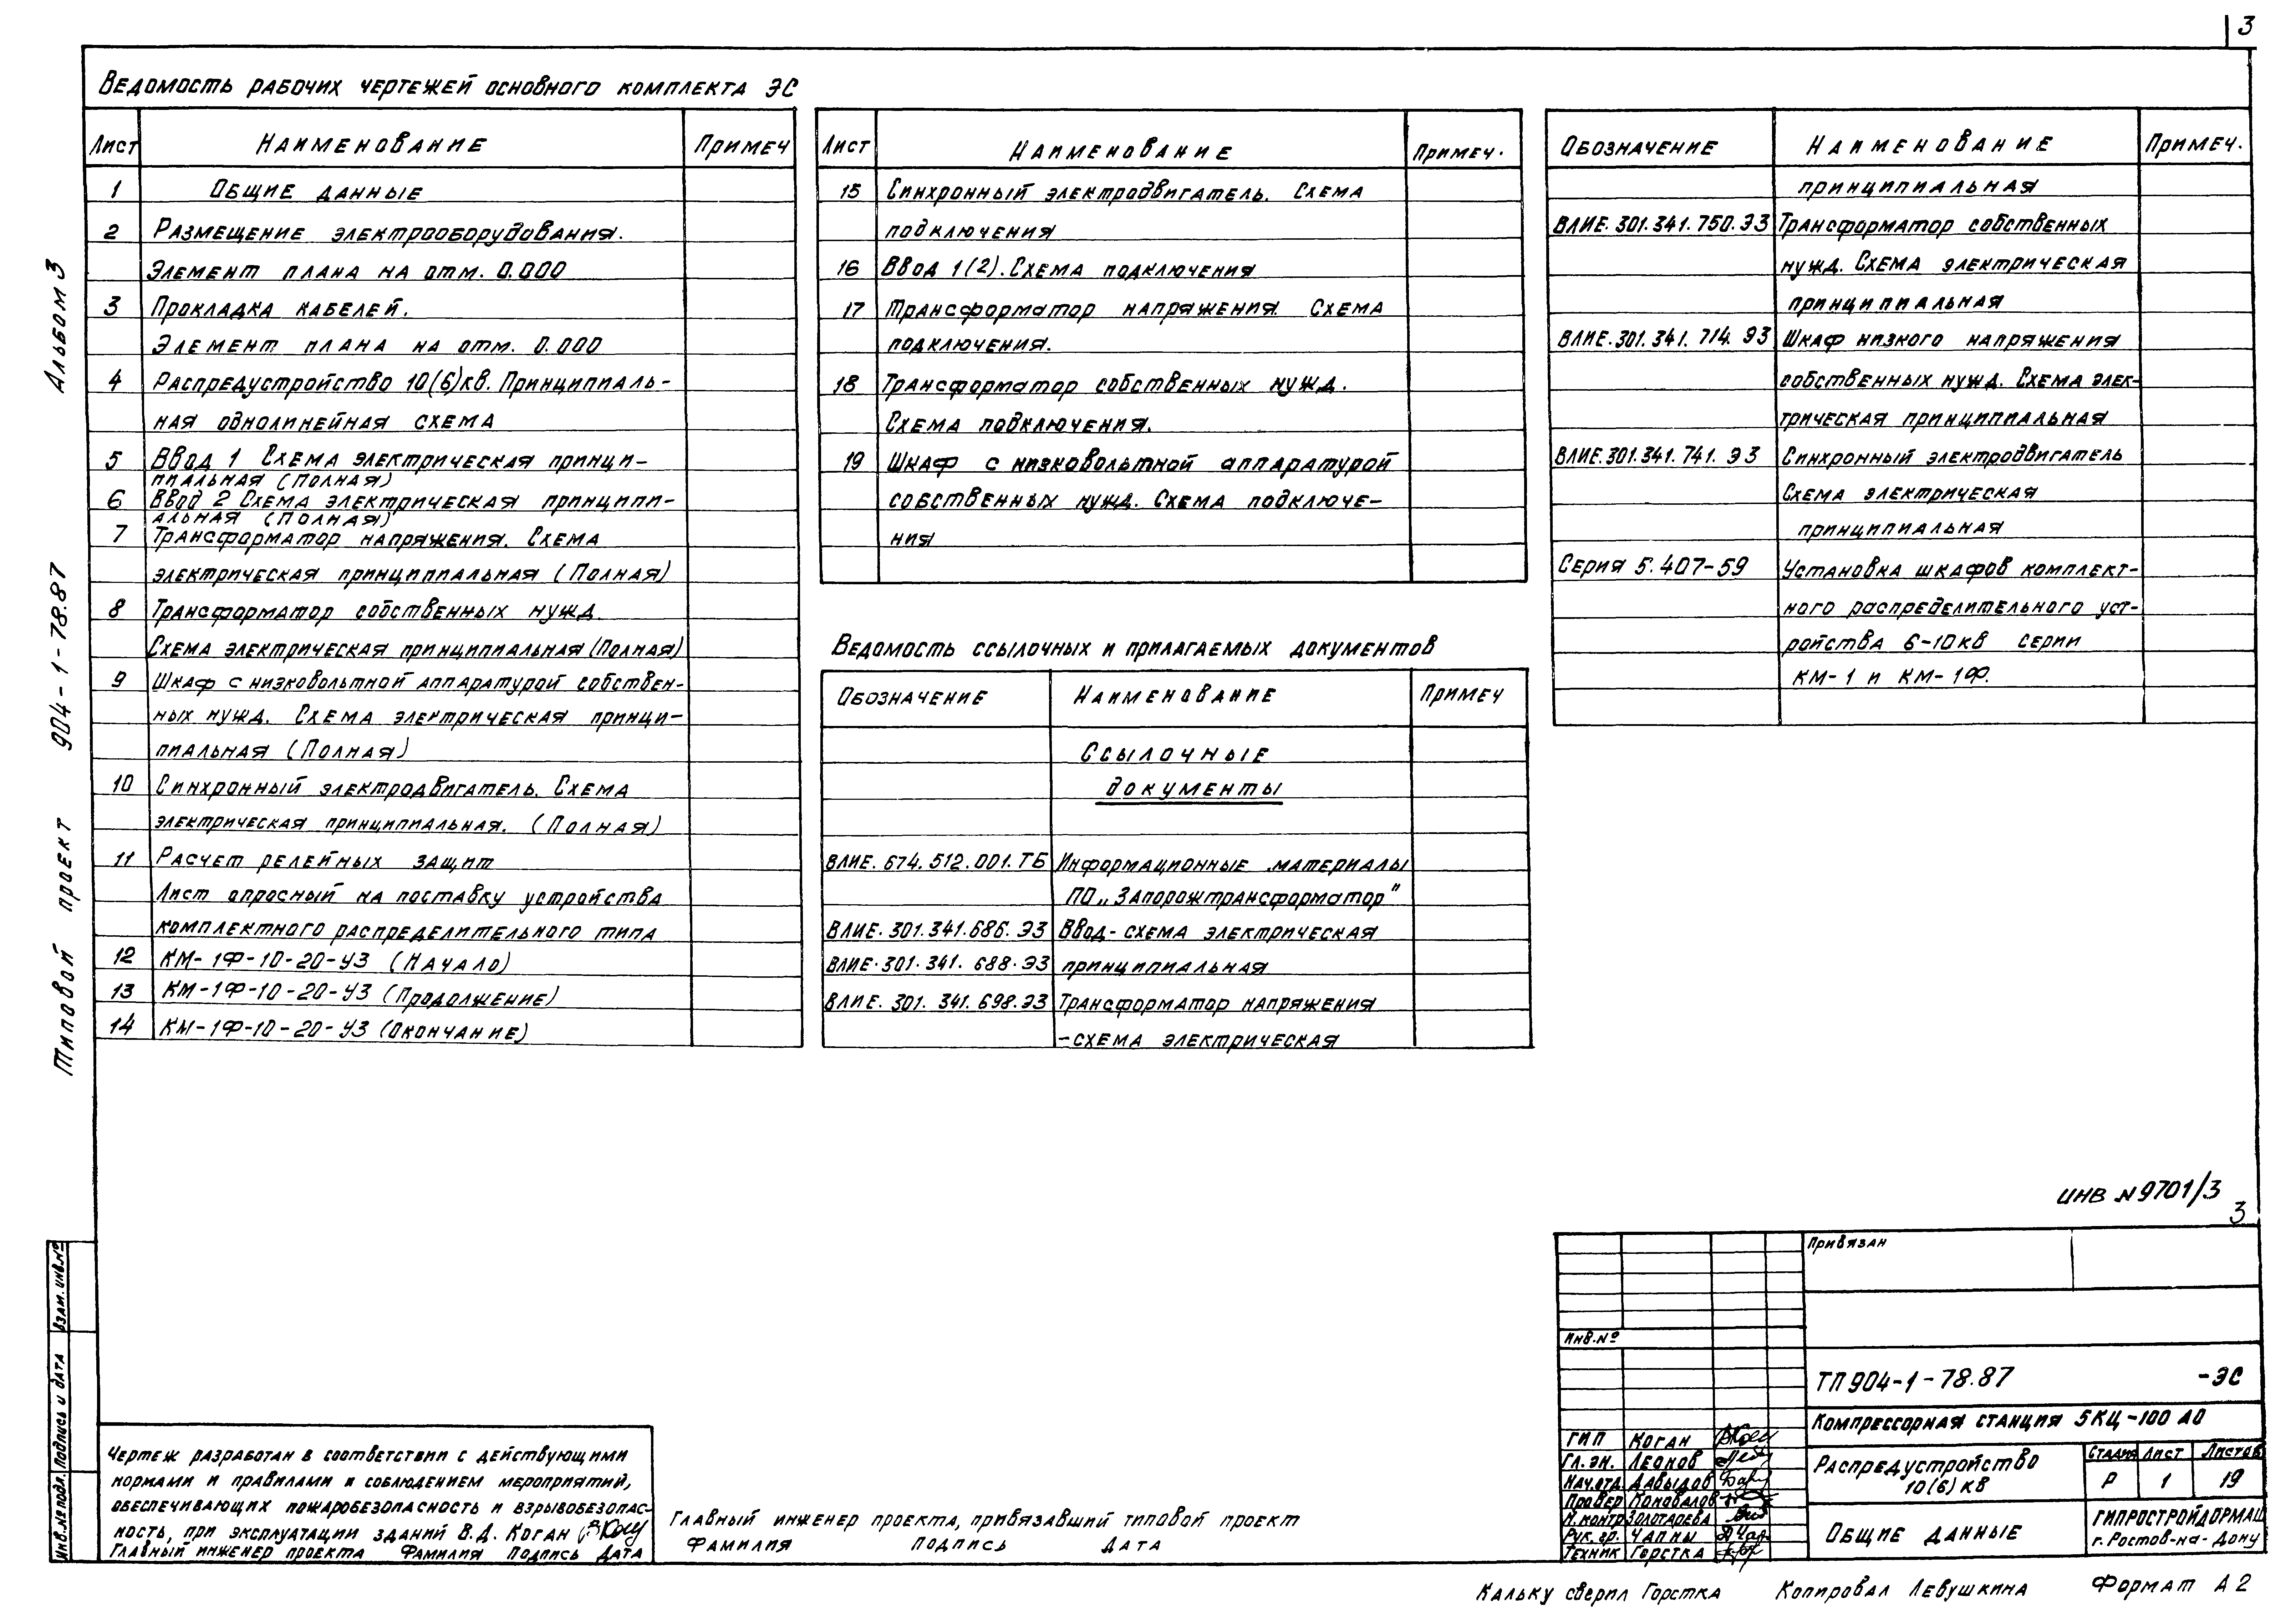 3
Ведомость рабочих чертежей основного комплекта ЭС
Лист Наименование Примеч
1 Общие данные
2 Размещение электрооборудования.
Элемент плана на отм. 0.000
3 Прокладка кабелей.
Элемент плана на отм. 0.000
4 Распредустройство 10(6)кв. Принципиаль-
ная однолинейная схема
5 Ввод 1 Схема электрическая принци-
пиальная (Полная)
6 Ввод 2 Схема электрическая принципи-
альная (Полная)
7 Трансформатор напряжения. Схема
электрическая принципиальная (Полная)
8 Трансформатор собственных нужд.
Схема электрическая принципиальная (Полная)
9 Шкаф с низковольтной аппаратурой собствен-
ных нужд. Схема электрическая принци-
пиальная (Полная)
10 Синхронный электродвигатель. Схема
электрическая принципиальная. (Полная)
11 Расчет релейных защит
Лист опросный на поставку устройства
комплектного распределительного типа
12 КМ-1Ф-10-20-У3 (Начало)
13 КМ-1Ф-10-20-У3 (Продолжение)
14 КМ-1Ф-10-20-У3 (Окончание)
Лист Наименование Примеч.
15 Синхронный электродвигатель. Схема
подключения
16 Ввод 1(2). Схема подключения
17 Трансформатор напряжения. Схема
подключения.
18 Трансформатор собственных нужд.
Схема подключения.
19 Шкаф с низковольтной аппаратурой
собственных нужд. Схема подключе-
ния
Ведомость ссылочных и прилагаемых документов
Обозначение Наименование Примеч
Ссылочные
документы
ВЛИЕ.674.512.001.ТБ Информационные материалы
ПО „Запорожтрансформатор"
ВЛИЕ.301.341.686.Э3 Ввод-схема электрическая
ВЛИЕ.301.341.688.Э3 принципиальная
ВЛИЕ.301.341.698.Э3 Трансформатор напряжения
-схема электрическая
Обозначение Наименование Примеч.
принципиальная
ВЛИЕ.301.341.750.Э3 Трансформатор собственных
нужд. Схема электрическая
принципиальная
ВЛИЕ.301.341.714.Э3 Шкаф низкого напряжения
собственных нужд. Схема элек-
трическая принципиальная
ВЛИЕ.301.341.741.Э3 Синхронный электродвигатель
Схема электрическая
принципиальная
Серия 5.407-59 Установка шкафов комплект-
ного распределительного уст-
ройства 6-10кв серии
КМ-1 и КМ-1Ф.
Типовой проект 904-1-78.87 Альбом 3
Инв.№ подл. Подпись и дата Взам. инв.№
Чертеж разработан в соответствии с действующими
нормами и правилами и соблюдением мероприятий,
обеспечивающих пожаробезопасность и взрывобезопас-
ность, при эксплуатации зданий В.Д. Коган
Главный инженер проекта Фамилия Подпись Дата
Главный инженер проекта, привязавший типовой проект
Фамилия Подпись Дата
инв №9701/3
3
Привязан
Инв.№
ТП 904-1-78.87 -ЭС
Компрессорная станция 5КЦ-100 АО
ГИП Коган
Гл. эн. Леонов
Нач.отд Давыдов
Провер Коновалов
Н.контр Золотарева
Рук. гр. Чапны
Техник Горстка
Распредустройство
10(6) кв
Стадия Лист Листов
Р 1 19
Общие данные
ГИПРОСТРОЙДОРМАШ
г. Ростов-на-Дону
Кальку сверил Горстка Копировал Левушкина Формат А2